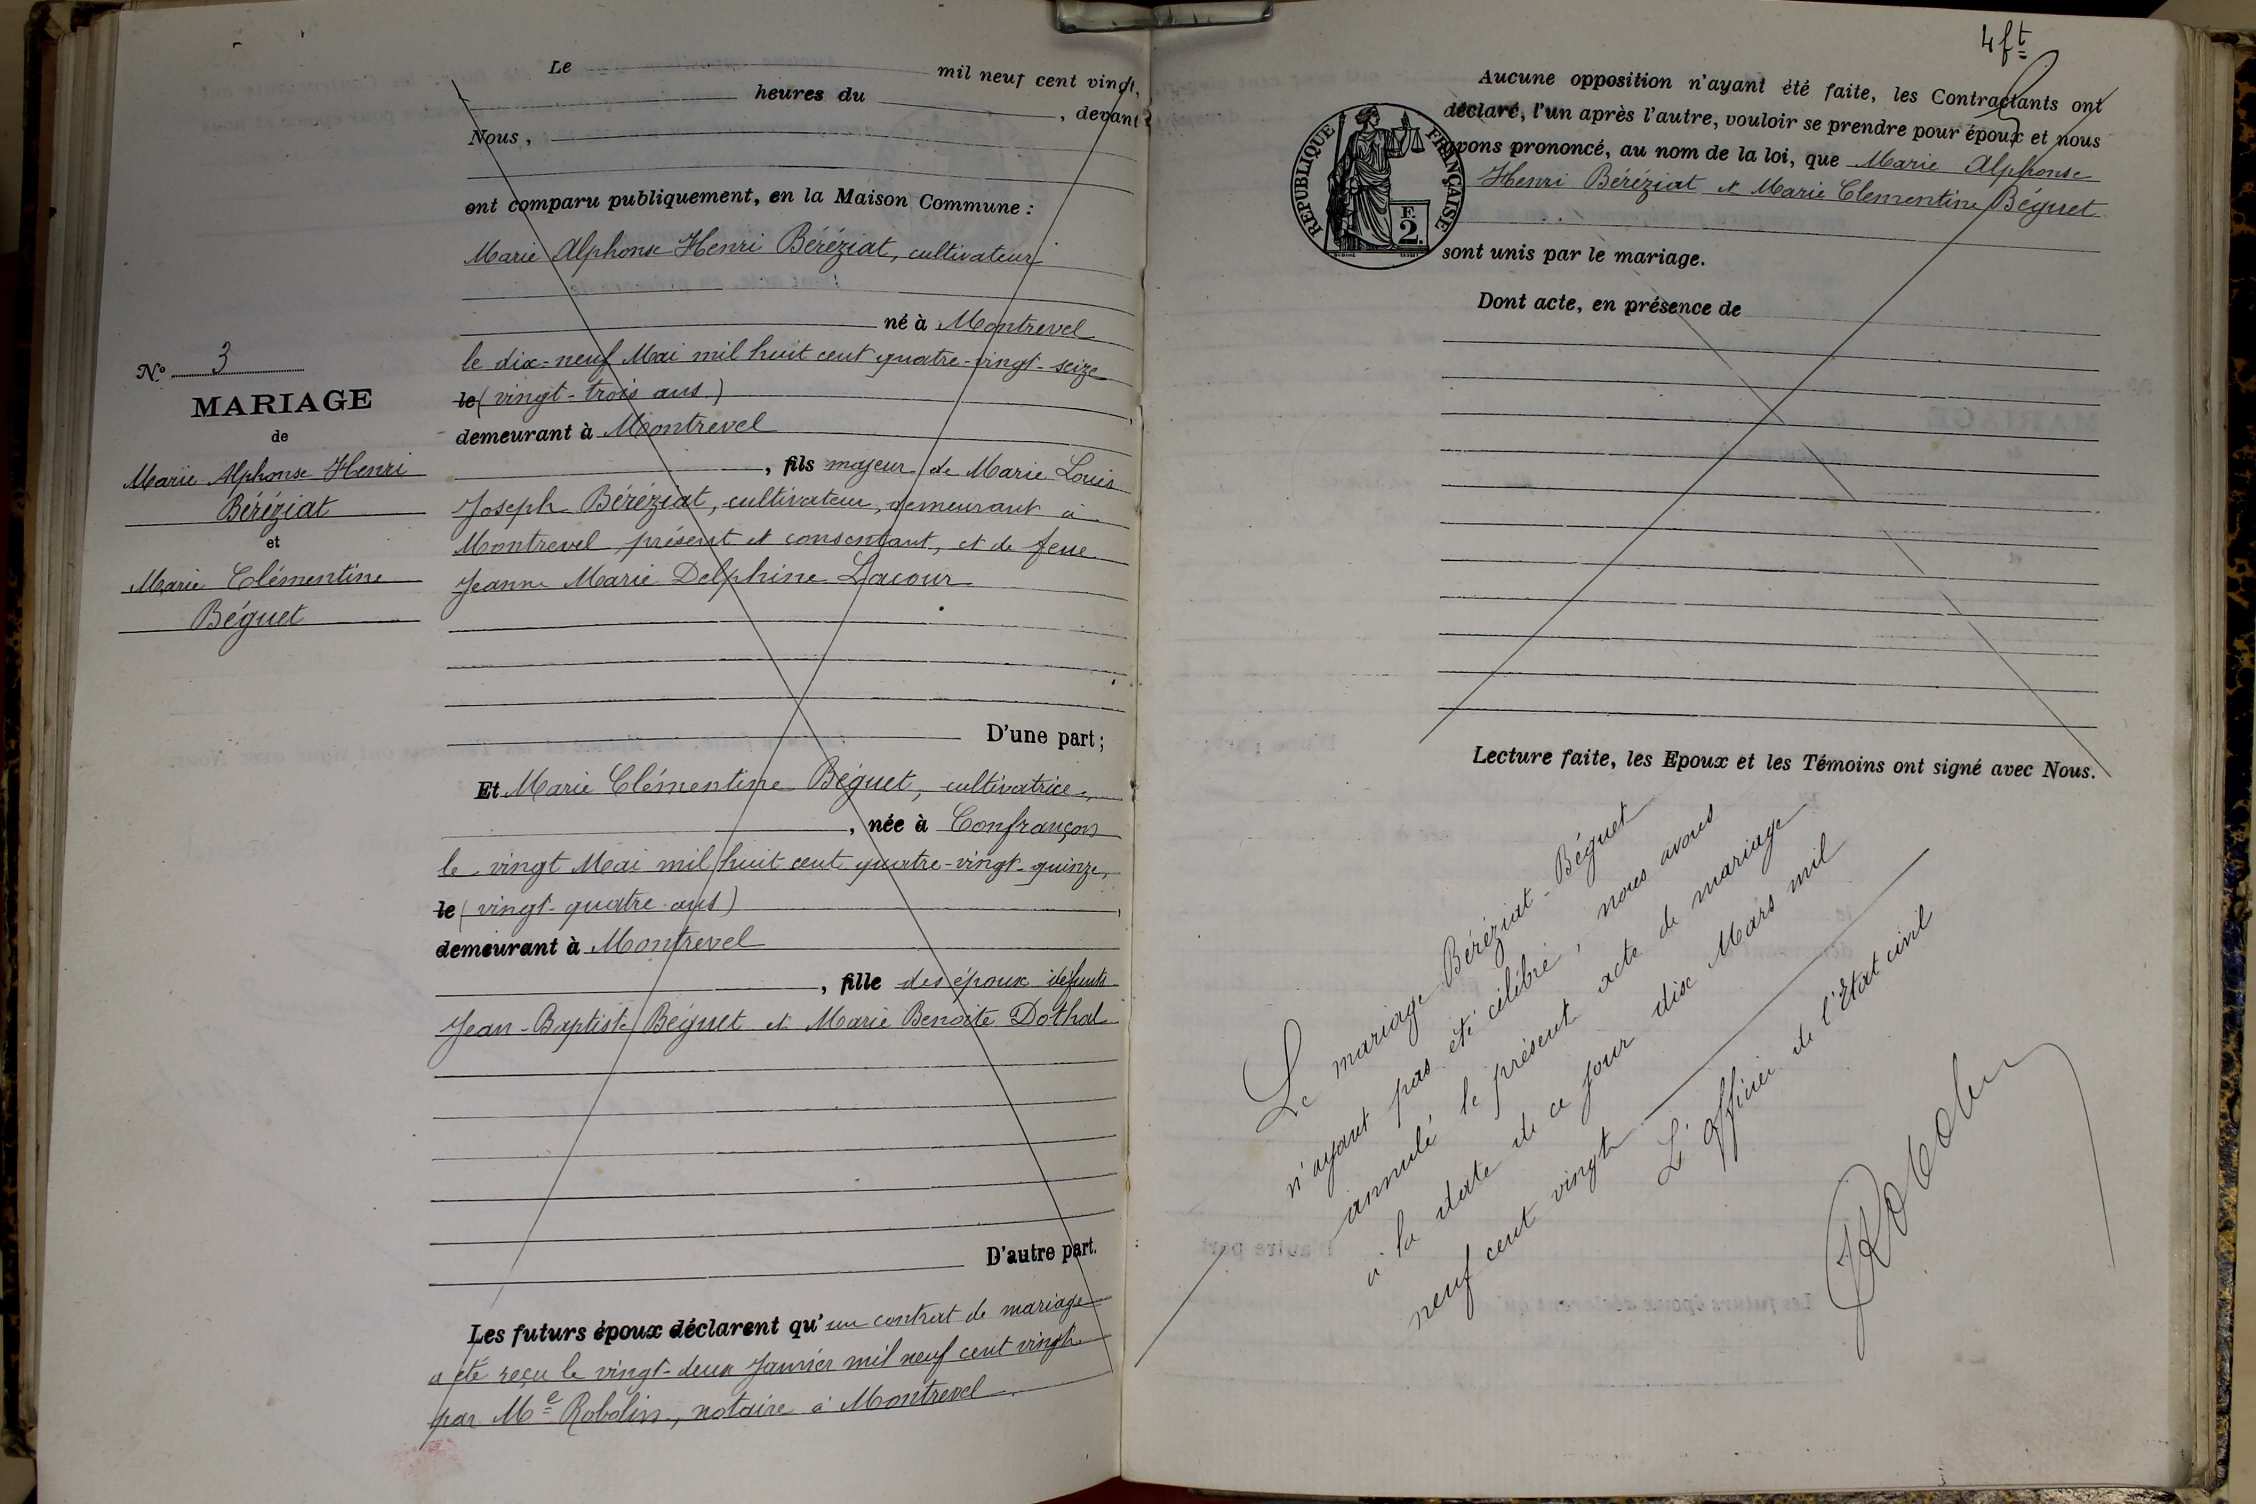 Le mil neuf cent vingt,
heures du , devant
Nous,
ont comparu publiquement, en la Maison Commune :
Marie Alphonse Henri Béréziat, cultivateur
né à Montrevel
le dix-neuf Mai mil huit cent quatre-vingt-seize
le (vingt-trois ans)
demeurant à Montrevel
, fils majeur de Marie Louis
Joseph Béréziat, cultivateur, demeurant à
Montrevel, présent et consentant, et de feue
Jeanne Marie Delphine Lacour
D'une part ;
Nº 3
MARIAGE
de
Marie Alphonse Henri
Béréziat
et
Marie Clémentine
Béguet
Et Marie Clémentine Béguet, cultivatrice,
, née à Confrançon
le vingt Mai mil huit cent quatre-vingt-quinze,
le (vingt-quatre ans) ,
demeurant à Montrevel
, fille des époux défunts
Jean-Baptiste Béguet et Marie Benoite Dothal
D'autre part.
Les futurs époux déclarent qu'un contrat de mariage
a été reçu le vingt-deux Janvier mil neuf cent vingt
par Me Robolin, notaire à Montrevel
4 ft
Aucune opposition n'ayant été faite, les Contractants ont
déclaré, l'un après l'autre, vouloir se prendre pour époux et nous
avons prononcé, au nom de la loi, que Marie Alphonse
Henri Béréziat et Marie Clementine Béguet
sont unis par le mariage.
RÉPUBLIQUE FRANÇAISE
F.
2.
Dont acte, en présence de
Lecture faite, les Epoux et les Témoins ont signé avec Nous.
Le mariage Béréziat-Béguet
n'ayant pas été célébré, nous avons
annulé le présent acte de mariage
à la date de ce jour dix Mars mil
neuf cent vingt
L'Officier de l'Etat civil